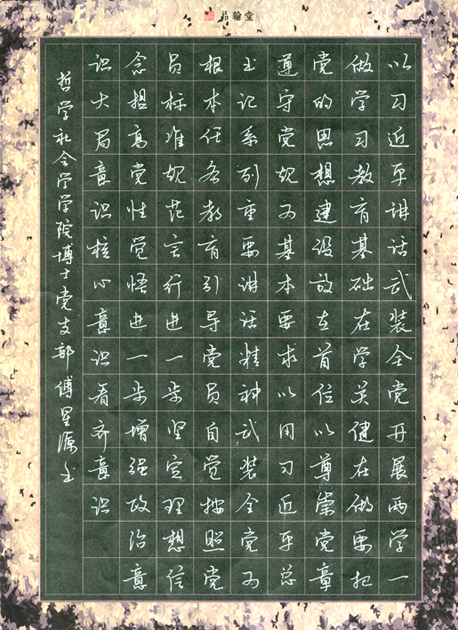 品翰堂
以习近平讲话武装全党开展两学一
做学习教育基础在学关键在做要把
党的思想建设放在首位以尊崇党章
遵守党规为基本要求以用习近平总
书记系列重要讲话精神武装全党为
根本任务教育引导党员自觉按照党
员标准规范言行进一步坚定理想信
念提高党性觉悟进一步增强政治意
识大局意识核心意识看齐意识
哲学社会学学院博士党支部傅星源书